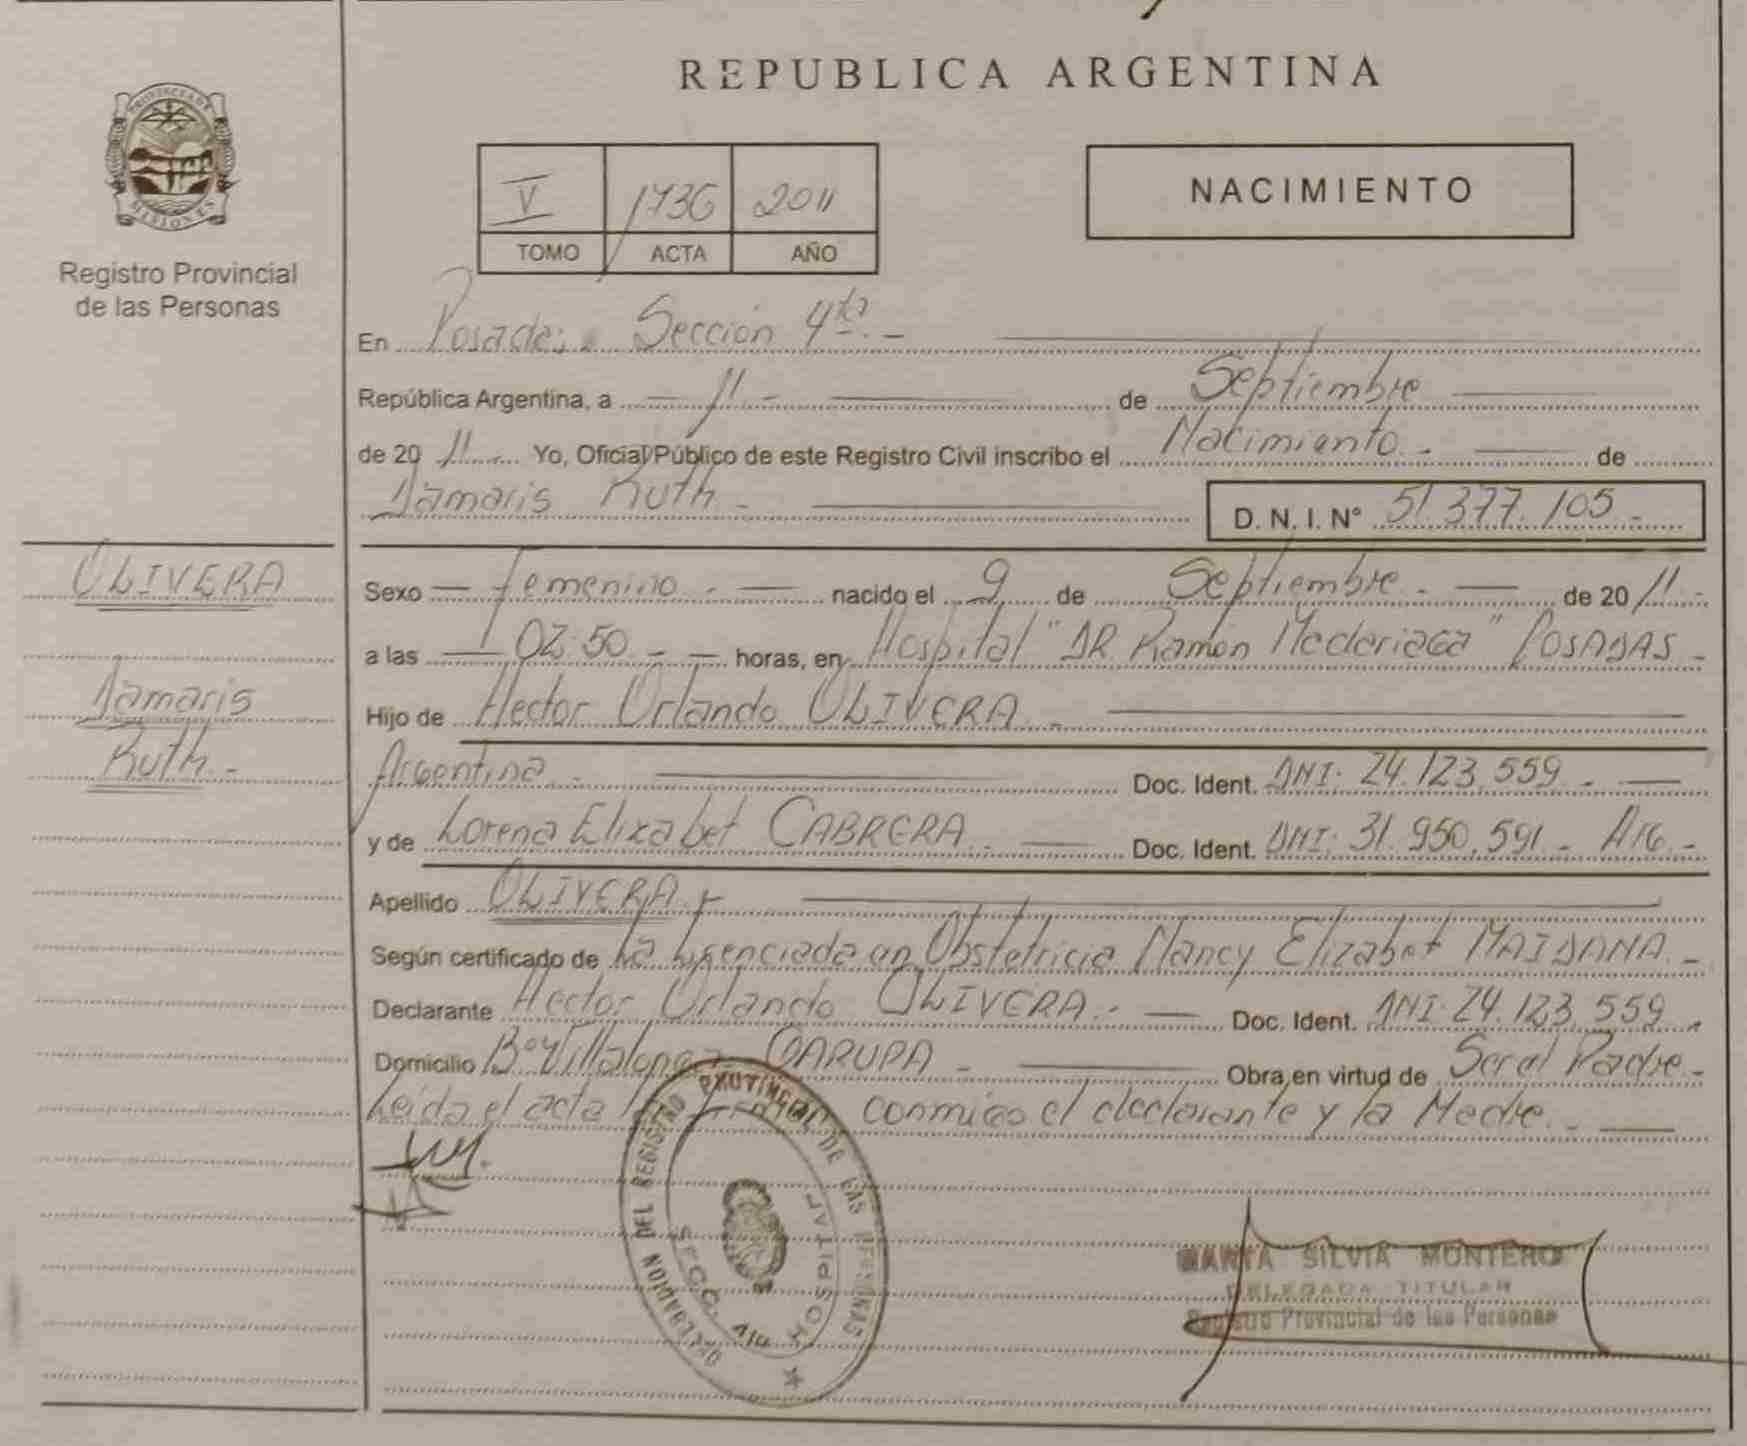 REPUBLICA ARGENTINA
PROVINCIA DE
MISIONES
Registro Provincial
de las Personas
V 1736 2011
TOMO ACTA AÑO
NACIMIENTO
En Posadas. Sección 4ta.-
República Argentina, a - 11 - de Septiembre
de 20 11.- Yo, Oficial Público de este Registro Civil inscribo el Nacimiento.- de
Damaris Ruth.- D. N. I. N° 51.377.105.-
OLIVERA
Damaris
Ruth.-
Sexo - Femenino.- nacido el 9 de Septiembre.- de 20 11.-
a las - 02:50.- horas, en Hospital "DR. Ramón Madariaga" POSADAS.-
Hijo de Hector Orlando OLIVERA.-
Argentina.- Doc. Ident. DNI: 24.123.559.-
y de Lorena Elizabet CABRERA.- Doc. Ident. DNI: 31.950.591.- Arg.-
Apellido OLIVERA.-
Según certificado de La Licenciada en Obstetricia Nancy Elizabet MAIDANA.-
Declarante Hector Orlando OLIVERA.- Doc. Ident. DNI: 24.123.559.
Domicilio Bº Villalonga GARUPA.- Obra en virtud de Ser el Padre.-
Leída el acta la conmigo el declarante y la Madre.-
DELEGACION DEL REGISTRO PROVINCIAL DE LAS PERSONAS
SECC. 4ta HOSPITAL
MARTA SILVIA MONTERO
DELEGADA TITULAR
Registro Provincial de las Personas